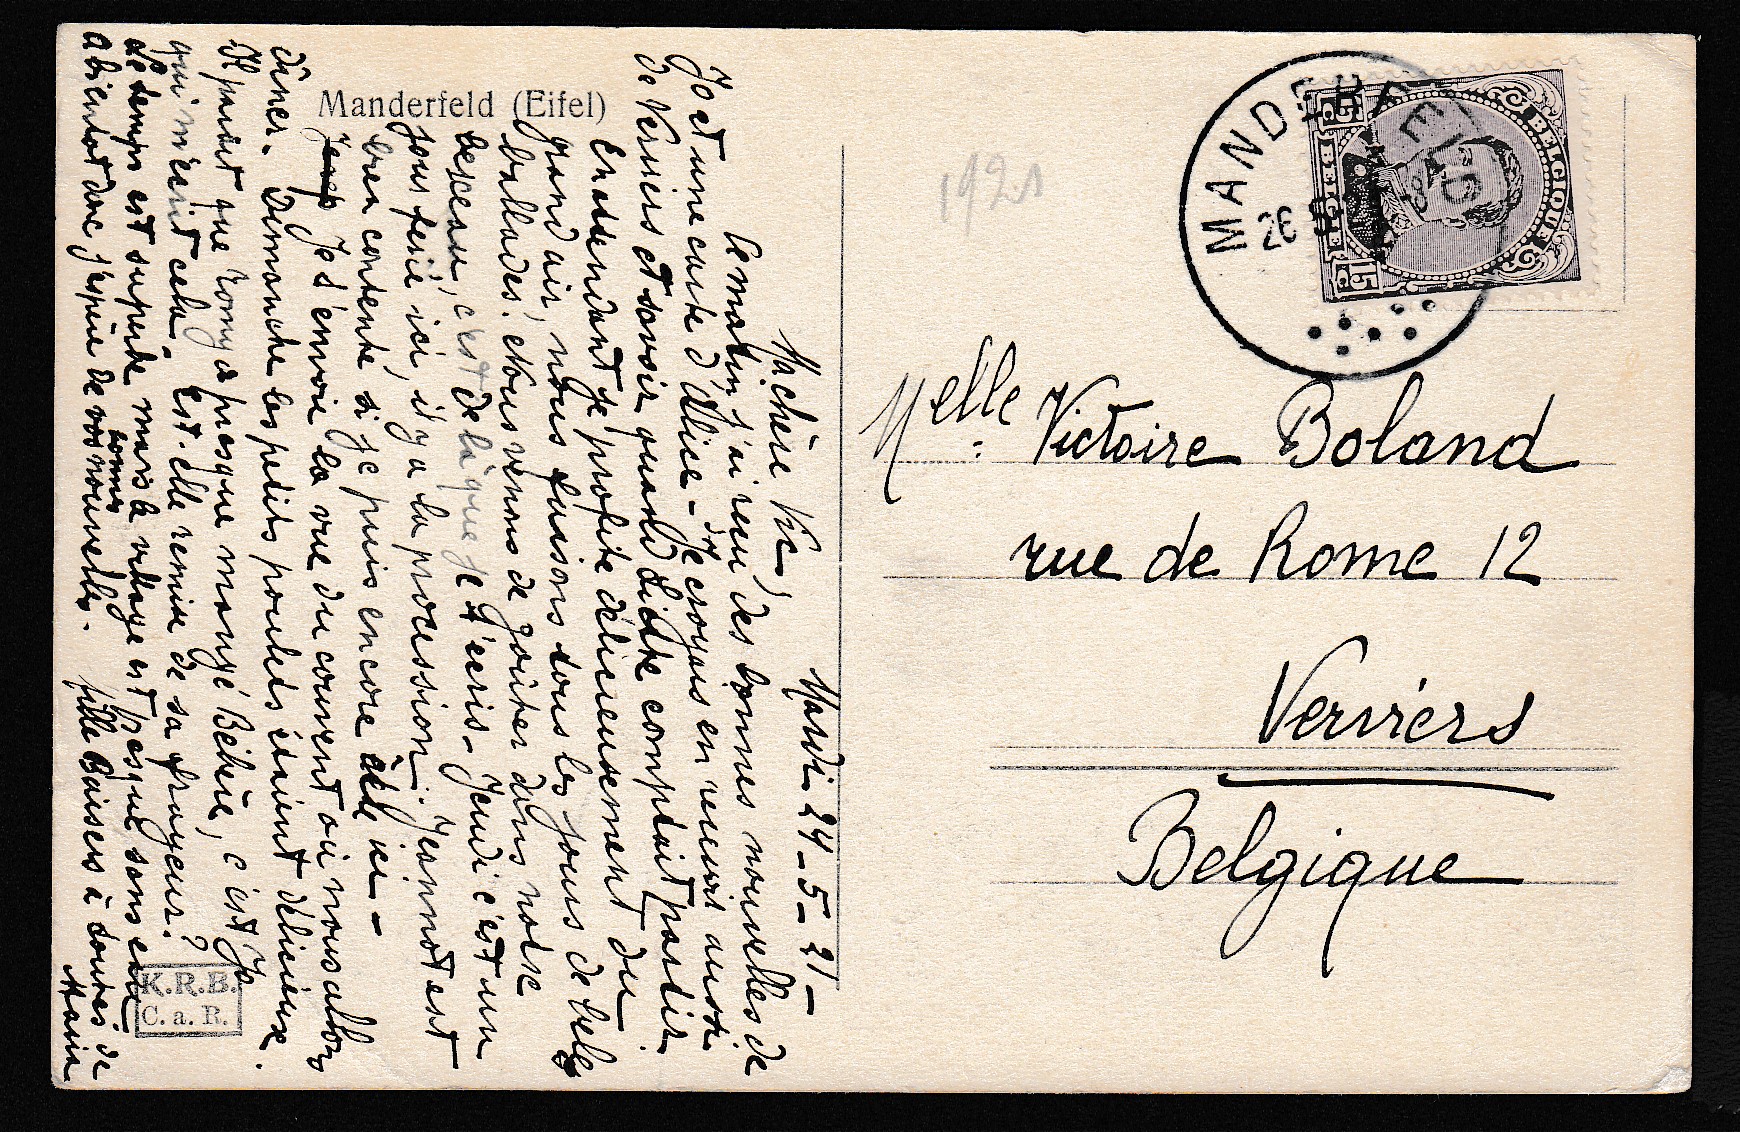 Manderfeld (Eifel)
Mardi 24-5-21-
Ma chère Vic,
Ce matin j'ai reçu des bonnes nouvelles de
Jo et une carte d'Alice - Je croyais en recevoir aussi
de Verviers et savoir quand Lidke comptait partir.
En attendant je profite délicieusement du
grand air, nous faisons tous les jours de belles
ballades. Nous venons de goûter dans notre
berceau, c'est de là que je t'écris. Jeudi c'est un
jour férié ici, il y a la procession. Jeannot est
bien contente si je puis encore être ici -
Je t'envoie la vue du couvent où nous allons
dîner. Dimanche les petits poulets étaient délicieux.
Il paraît que Romy a presque mangé Bébère, c'est Jo
qui m'écrit cela. Est-elle remise de sa frayeur?
Le temps est superbe mais le village est presque sans eau
A bientôt donc j'espère de vos bonnes nouvelles.
mille Baisers à toutes. de
Maria
K.R.B.
C. a R.
1921
MANDERFELD
26
BELGIQUE
BELGIE
15 c
15 c
Melle Victoire Boland
rue de Rome 12
Verviers
Belgique